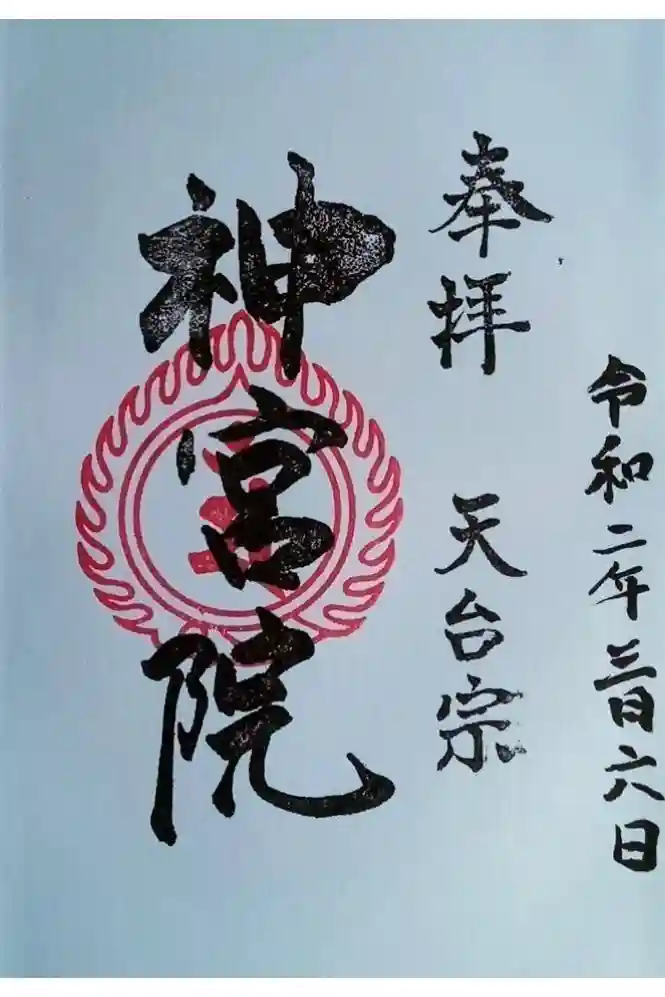 令和二年三月六日
奉拝 天台宗
神宮院